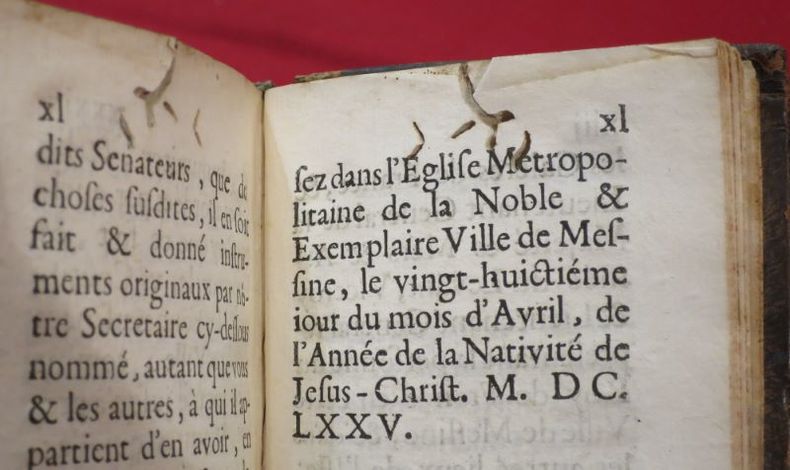 xl
dits Senateurs, que de
choſes ſuſdites, il en ſoit
fait & donné inſtru-
ments originaux par nô-
tre Secretaire cy-deſſous
nommé, autant que vous
& les autres, à qui il ap-
partient d'en avoir, en
xl
ſez dans l'Egliſe Metropo-
litaine de la Noble &
Exemplaire Ville de Meſ-
ſine, le vingt-huictiéme
iour du mois d'Avril, de
l'Année de la Nativité de
Jeſus-Chriſt. M. D C.
LXXV.